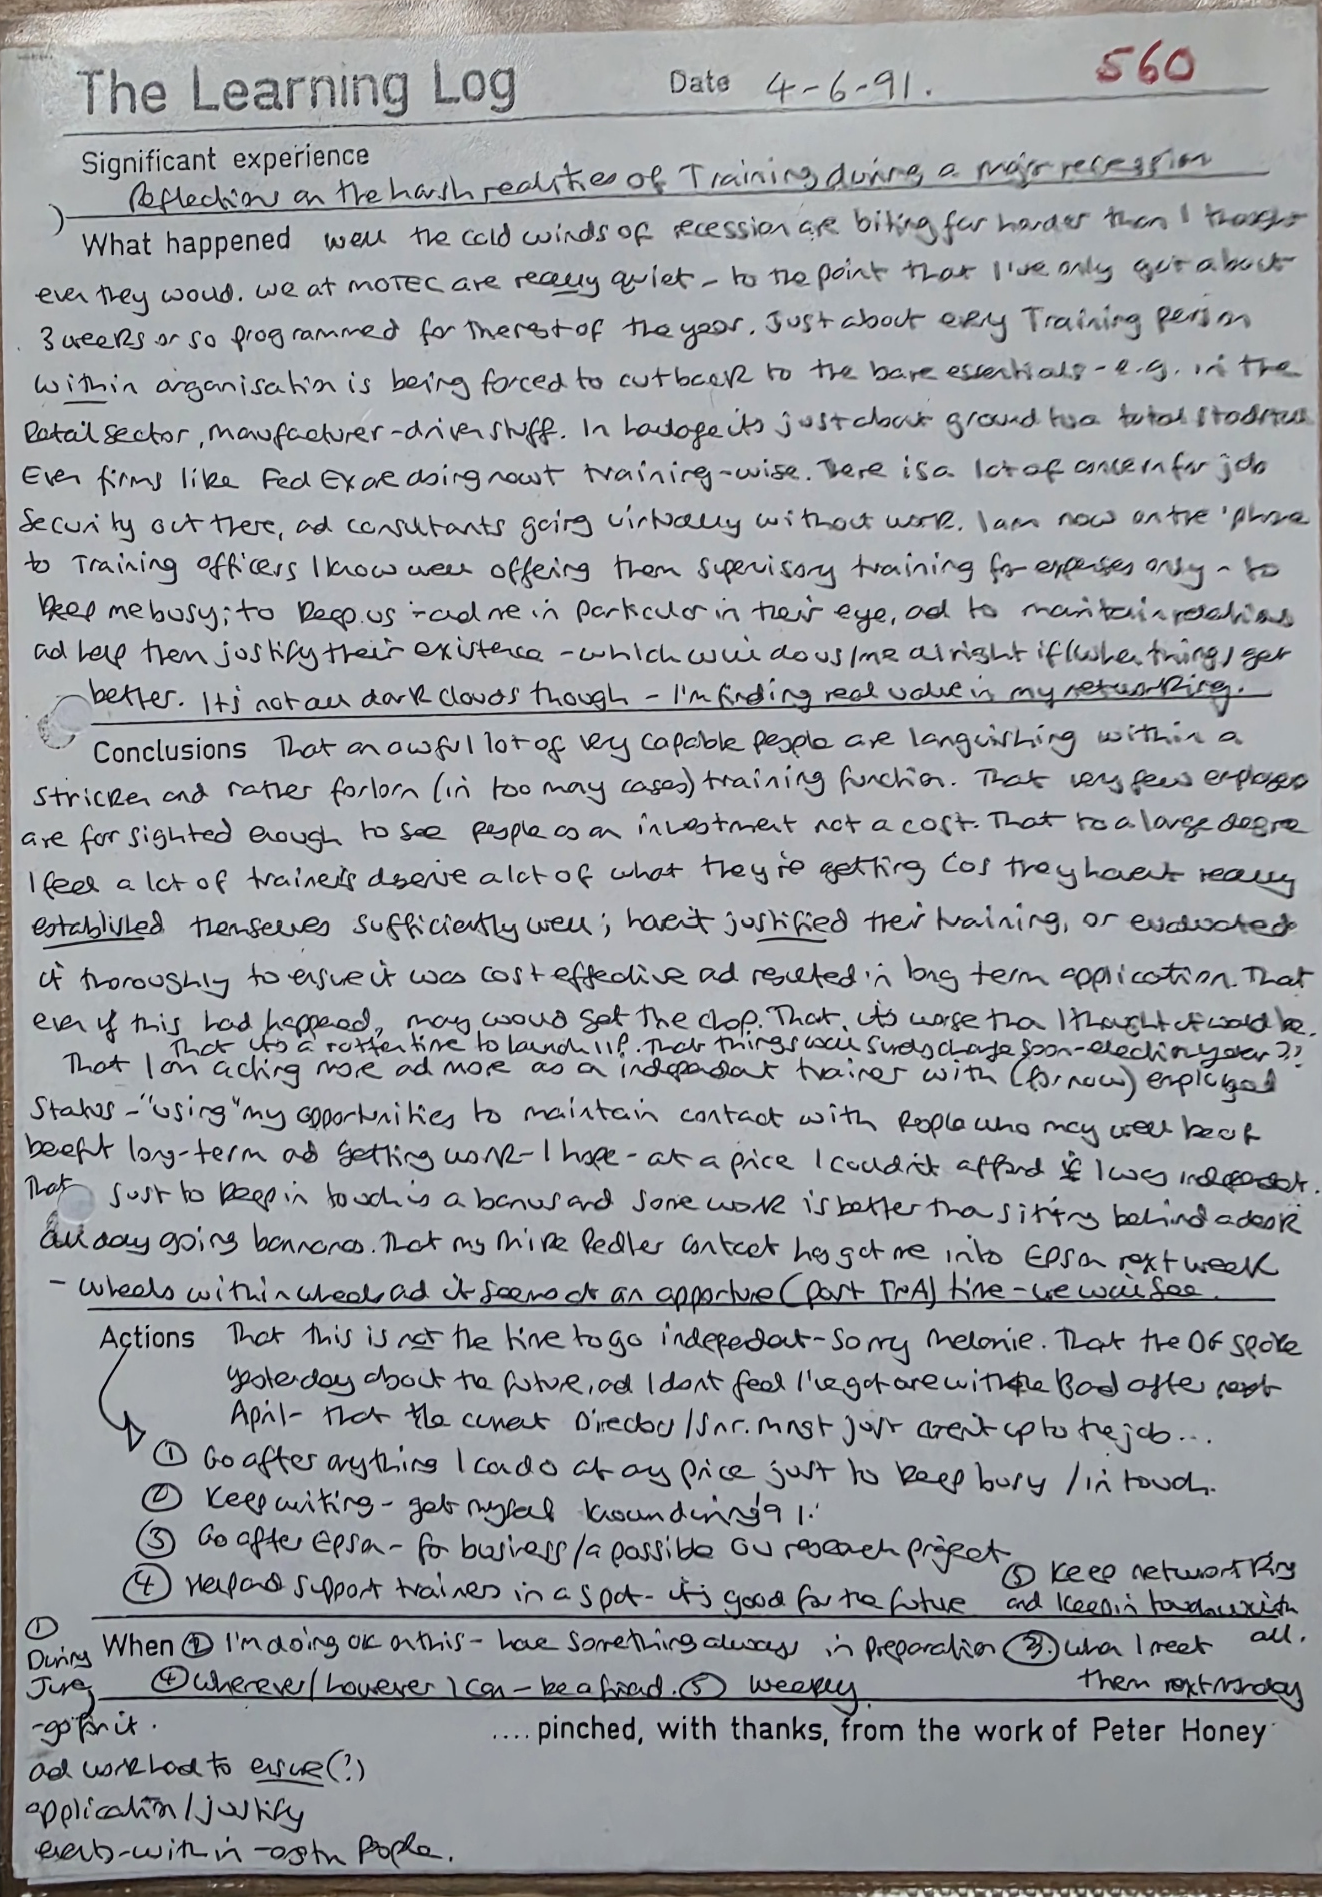 The Learning Log Date 4-6-91. 560
Significant experience
Reflections on the harsh realities of Training during a major recession
What happened well the cold winds of recession are biting far harder than I thought
ever they would. We at MOTEC are really quiet - to the point that I've only got about
3 weeks or so programmed for the rest of the year. Just about every Training person
within organisation is being forced to cut back to the bare essentials - e.g. in the
Retail sector, manufacturer-driver stuff. In haulage its just about ground to a total
Even firms like Fed Ex are doing nowt training-wise. There is a lot of concern for job
security out there, ad consultants going virtually without work. I am now on the 'phone
to Training officers I know well offering them supervisory training for expenses only - to
keep me busy; to keep us - ad me in particular in their eye, ad to maintain relations
ad help them justify their existence - which will do us/me alright if/when things get
better. It's not all dark clouds though - I'm finding real value in my networking.
Conclusions That an awful lot of very capable people are languishing within a
stricken and rather forlorn (in too many cases) training function. That very few employers
are far sighted enough to see people as an investment not a cost. That to a large degree
I feel a lot of trainers deserve a lot of what they're getting cos they haven't really
established themselves sufficiently well; haven't justified their training, or evaluated
it thoroughly to ensure it was cost effective ad resulted in long term application. That
even if this had happened, many would get the chop. That its worse than I thought it would be.
That its a rotten time to launch That things will surely change soon - election year??
That I am acting more ad more as an independent trainer with (for now) employed
status - "using" my opportunities to maintain contact with people who may well be of
benefit long-term ad getting work - I hope - at a price I couldn't afford if I was independent.
That just to keep in touch is a bonus and some work is better than sitting behind a desk
all day going bannanas. That my Mike Pedler contact has got me into Epson next week
- wheels within wheels ad it seems at an opportune (part TNA) time - we will see.
Actions That this is not the time to go independent - sorry Melanie. That the DG spoke
yesterday about the future, ad I dont feel I've got one with the Board after next
April - that the current Director/Snr. Mngt just aren't up to the job...
① Go after anything I can do at any price just to keep busy / in touch.
② Keep writing - get myself known during '91.
③ Go after Epson - for business/a possible OU research project
④ Help and support trainers in a spot - it's good for the future ⑤ Keep networking
and keep in touch with all.
① During June - go for it.
When ② I'm doing ok on this - have something always in preparation ③ when I meet
them next Monday
④ wherever/however I can - be a friend. ⑤ weekly.
.... pinched, with thanks, from the work of Peter Honey
ad work hard to ensure (?)
application/justify
events - within people.